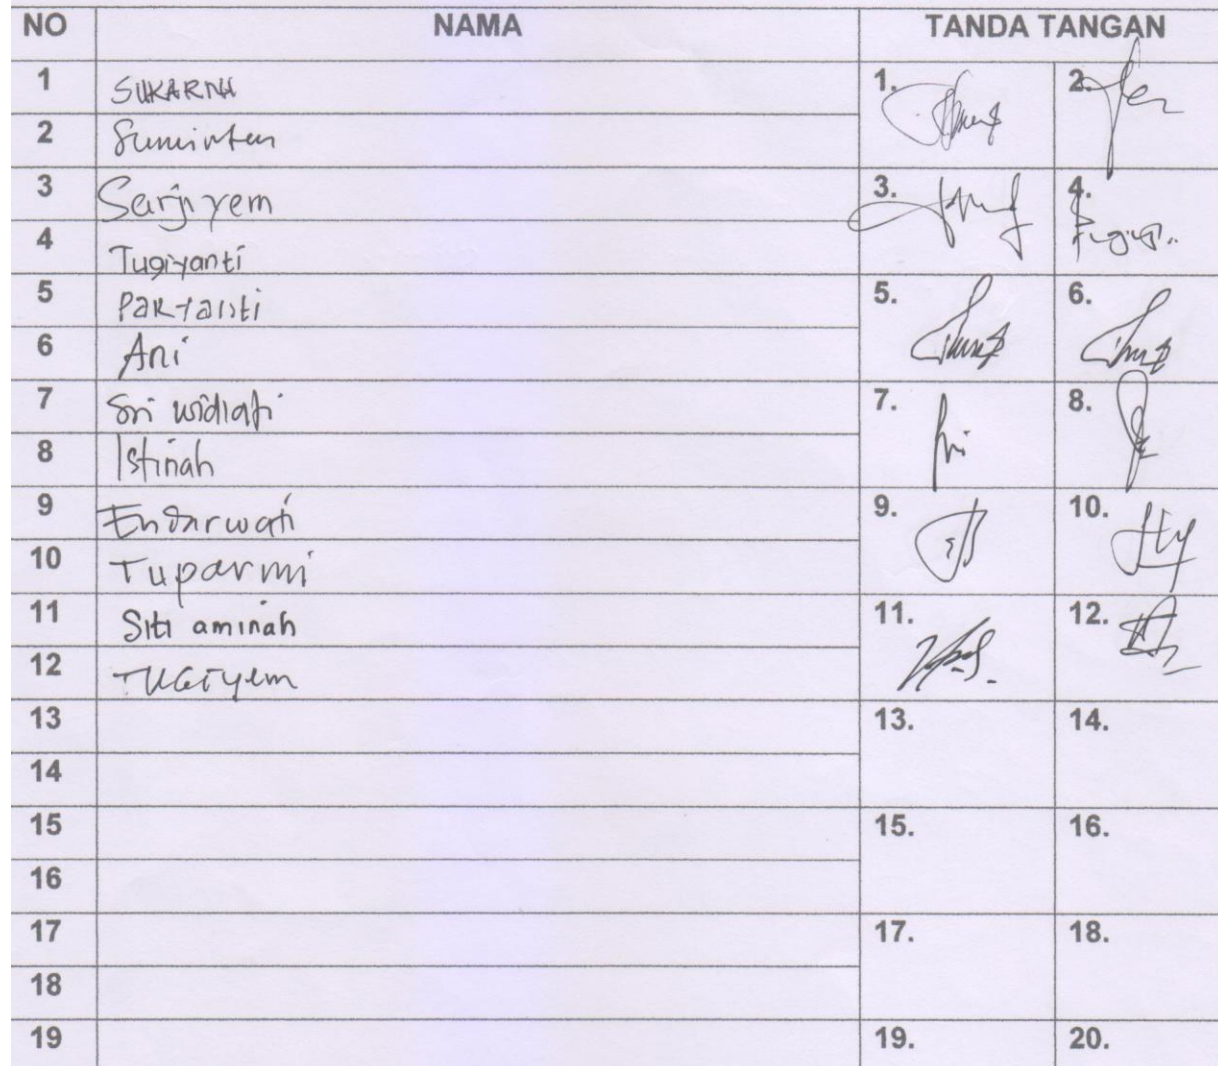 NO NAMA TANDA TANGAN
1 SUKARNI 1. 2.
2 Suminten
3 Sarjiyem 3. 4.
4 Tugiyanti
5 Partanti 5. 6.
6 Ani
7 Sri widiati 7. 8.
8 Istinah
9 Endarwati 9. 10.
10 Tuparmi
11 Siti aminah 11. 12.
12 TUGiyem
13 13. 14.
14
15 15. 16.
16
17 17. 18.
18
19 19. 20.